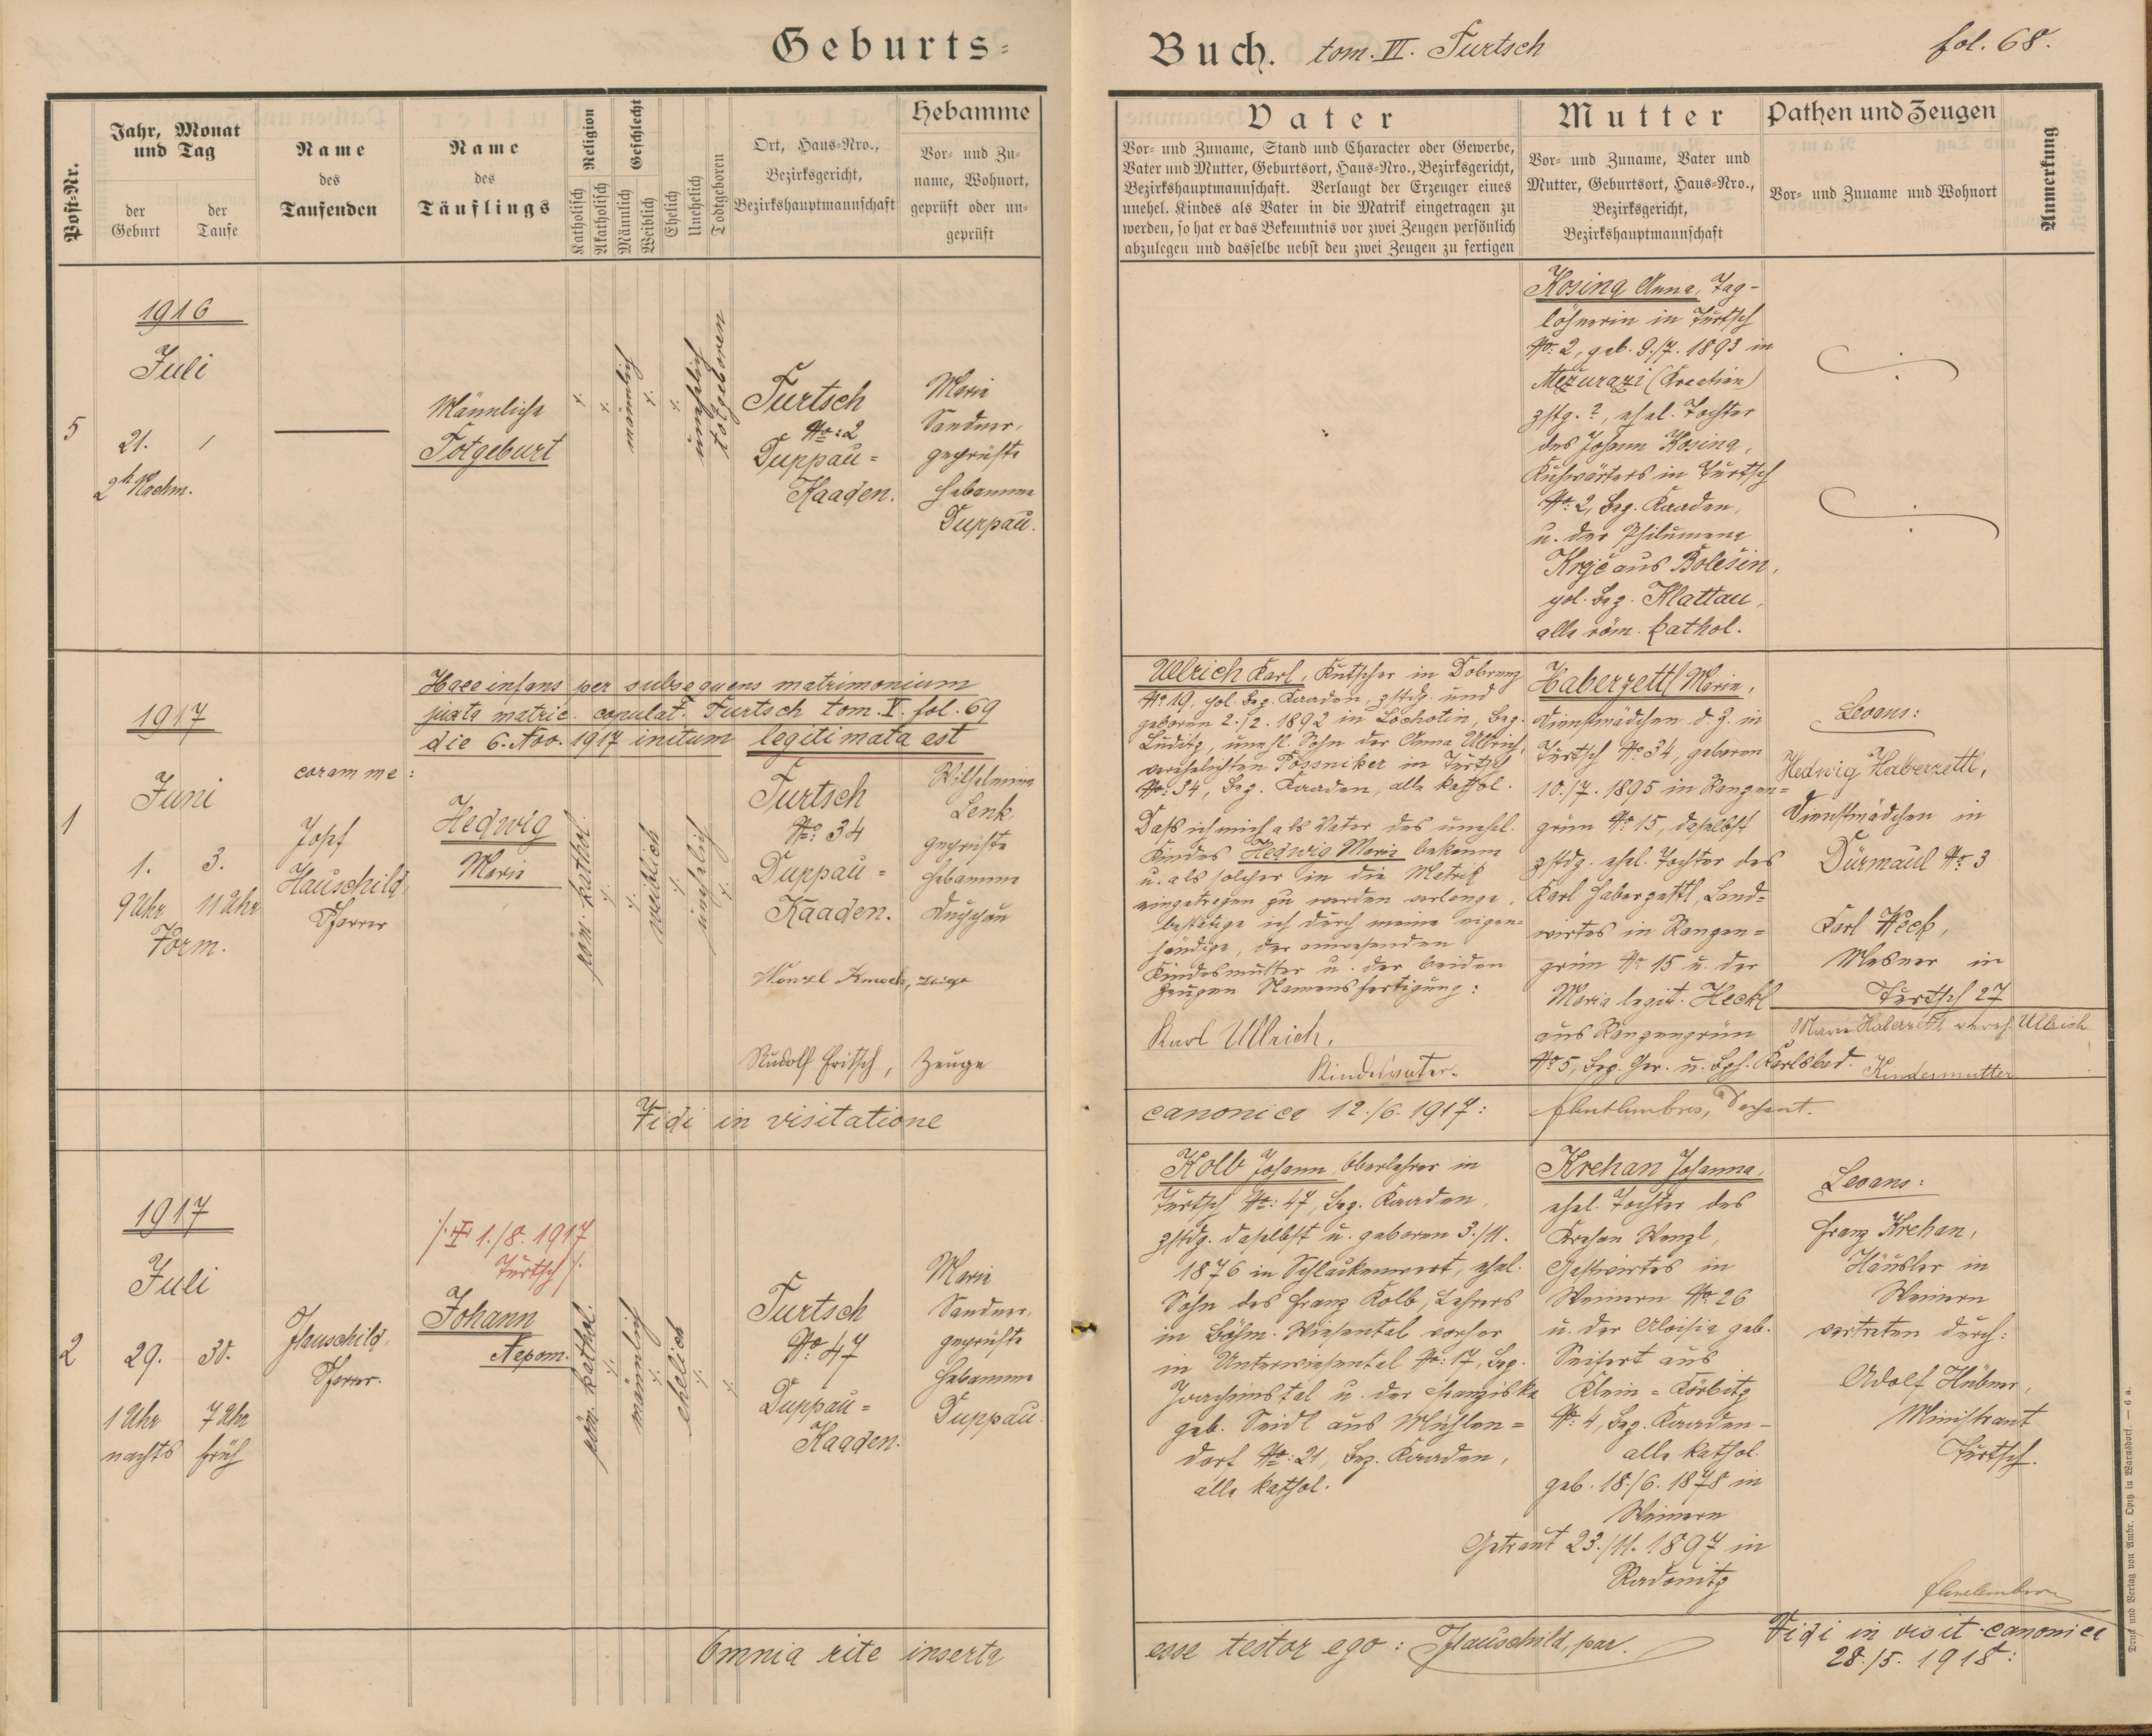 Geburts-
Buch. tom. VI. Turtsch
fol. 68.
Post-Nr.
Jahr, Monat
und Tag
der
Geburt
der
Taufe
Name
des
Taufenden
Name
des
Täuflings
Religion
Katholisch
Akatholisch
Geschlecht
Männlich
Weiblich
Ehelich
Unehelich
Todtgeboren
Ort, Haus-Nro.,
Bezirksgericht,
Bezirkshauptmannschaft
Hebamme
Vor- und Zu-
name, Wohnort,
geprüft oder un-
geprüft
Vater
Vor- und Zuname, Stand und Character oder Gewerbe,
Vater und Mutter, Geburtsort, Haus-Nro., Bezirksgericht,
Bezirkshauptmannschaft. Verlangt der Erzeuger eines
unehel. Kindes als Vater in die Matrik eingetragen zu
werden, so hat er das Bekenntnis vor zwei Zeugen persönlich
abzulegen und dasselbe nebst den zwei Zeugen zu fertigen
Mutter
Vor- und Zuname, Vater und
Mutter, Geburtsort, Haus-Nro.,
Bezirksgericht,
Bezirkshauptmannschaft
Pathen und Zeugen
Vor- und Zuname und Wohnort
Anmerkung
5
1916
Juli
21. /
2h Nachm.
Männliche
Totgeburt
männlich
unehelich
totgeboren
Turtsch
No: 2
Duppau =
Kaaden.
Marie
Sandner,
geprüfte
Hebamme
Duppau.
Kosing Anna, Tag-
löhnerin in Turtsch
No: 2, geb. 9./7. 1893 in
(Kroatien)
zstg. ?, ehel. Tochter
des Johann Kosing,
Kuhwärters in Turtsch
No: 2, Bez. Kaaden,
u. der Philumena
Krejč aus Bolešin,
pol. Bez. Klattau,
alle röm. kathol.
1
1917
Juni
1. 3.
9 Uhr 11 Uhr
Vorm.
coram me:
Josef
Hauschild,
Pfarrer
Haec infans per subsequens matrimonium
juxta matric. copulat. Turtsch tom. V. fol. 69
die 6. Nov. 1917 initum legitimata est
Hedwig
Marie
röm. kathol.
weiblich
unehelich
Turtsch
No: 34
Duppau =
Kaaden.
Wilhelmine
Lenk,
geprüfte
Hebamme
Duppau
Wenzl Kmoch, Zeuge
Rudolf Fritsch, Zeuge
Ullrich Karl, Kutscher in Dobrenz
No 19, pol. Bez. Kaaden, zstdg. und
geboren 2./2. 1892 in Lochotin, Bez.
Luditz, unehl. Sohn der Anna Ullrich,
verehelichten Possniker in Turtsch
No: 34, Bez. Kaaden, alle kathol.
Daß ich mich als Vater des unehel.
Kindes Hedwig Marie bekenne
u. als solcher in die Matrik
eingetragen zu werden verlange,
bestätige ich durch meine eigen-
händige, der anwesenden
Kindesmutter u. der beiden
Zeugen Namensfertigung:
Karl Ullrich,
Kindesvater.
Haberzettl Marie,
Dienstmädchen d. Z. in
Turtsch No 34, geboren
10./7. 1895 in Rangen=
grün No 15, daselbst
zstdg. ehel. Tochter des
Karl Haberzettl, Land=
wirtes in Rangen=
grün No 15 u. der
Maria legit. Heckl
aus Rangengrün
No 5, Bez. Ger. u. Bzh. Karlsbad.
Levans:
Hedwig Haberzettl,
Dienstmädchen in
Dürmaul No 3
Karl Heck,
Mesner in
Turtsch 27
Marie Haberzettl verehl. Ullrich
Kindesmutter
Vidi in visitatione
canonica 12./6. 1917:
Dechant.
2
1917
Juli
29. 30.
1 Uhr 7 Uhr
nachts früh
Hauschild,
Pfarrer.
/. † 1./8. 1917
Turtsch /.
Johann
Nepom.
röm. kathol.
männlich
ehelich
Turtsch
No 47
Duppau =
Kaaden.
Marie
Sandner,
geprüfte
Hebamme
Duppau.
Kolb Johann, Oberlehrer in
Turtsch No: 47, Bez. Kaaden,
zstdg. daselbst u. geboren 3./11.
1876 in Schlackenwert, ehel.
Sohn des Franz Kolb, Lehrers
in Böhm. Wiesental vorher
in Unterwiesental No: 17, Bez.
Joachimstal u. der Franziska
geb. Seidl aus Mühlen=
dorf No: 21, Bez. Kaaden,
alle kathol.
Krehan Johanna,
ehel. Tochter des
Krehan Wenzl,
Gastwirtes in
Weinern No 26
u. der Aloisia geb.
Seifert aus
Klein = Körbitz
No: 4, Bez. Kaaden -
alle kathol.
geb. 18./6. 1878 in
Weinern
Getraut 23./11. 1897 in
Radonitz
Levans:
Franz Krehan,
Häusler in
Weinern
vertreten durch:
Adolf Hübner,
Ministrant
Turtsch.
Omnia rite inserta
esse testor ego: Hauschild, par.
Vidi in visit. canonica
28./5. 1918:
Druck und Verlag von Ambr. Opitz in Warnsdorf. — 6 a.